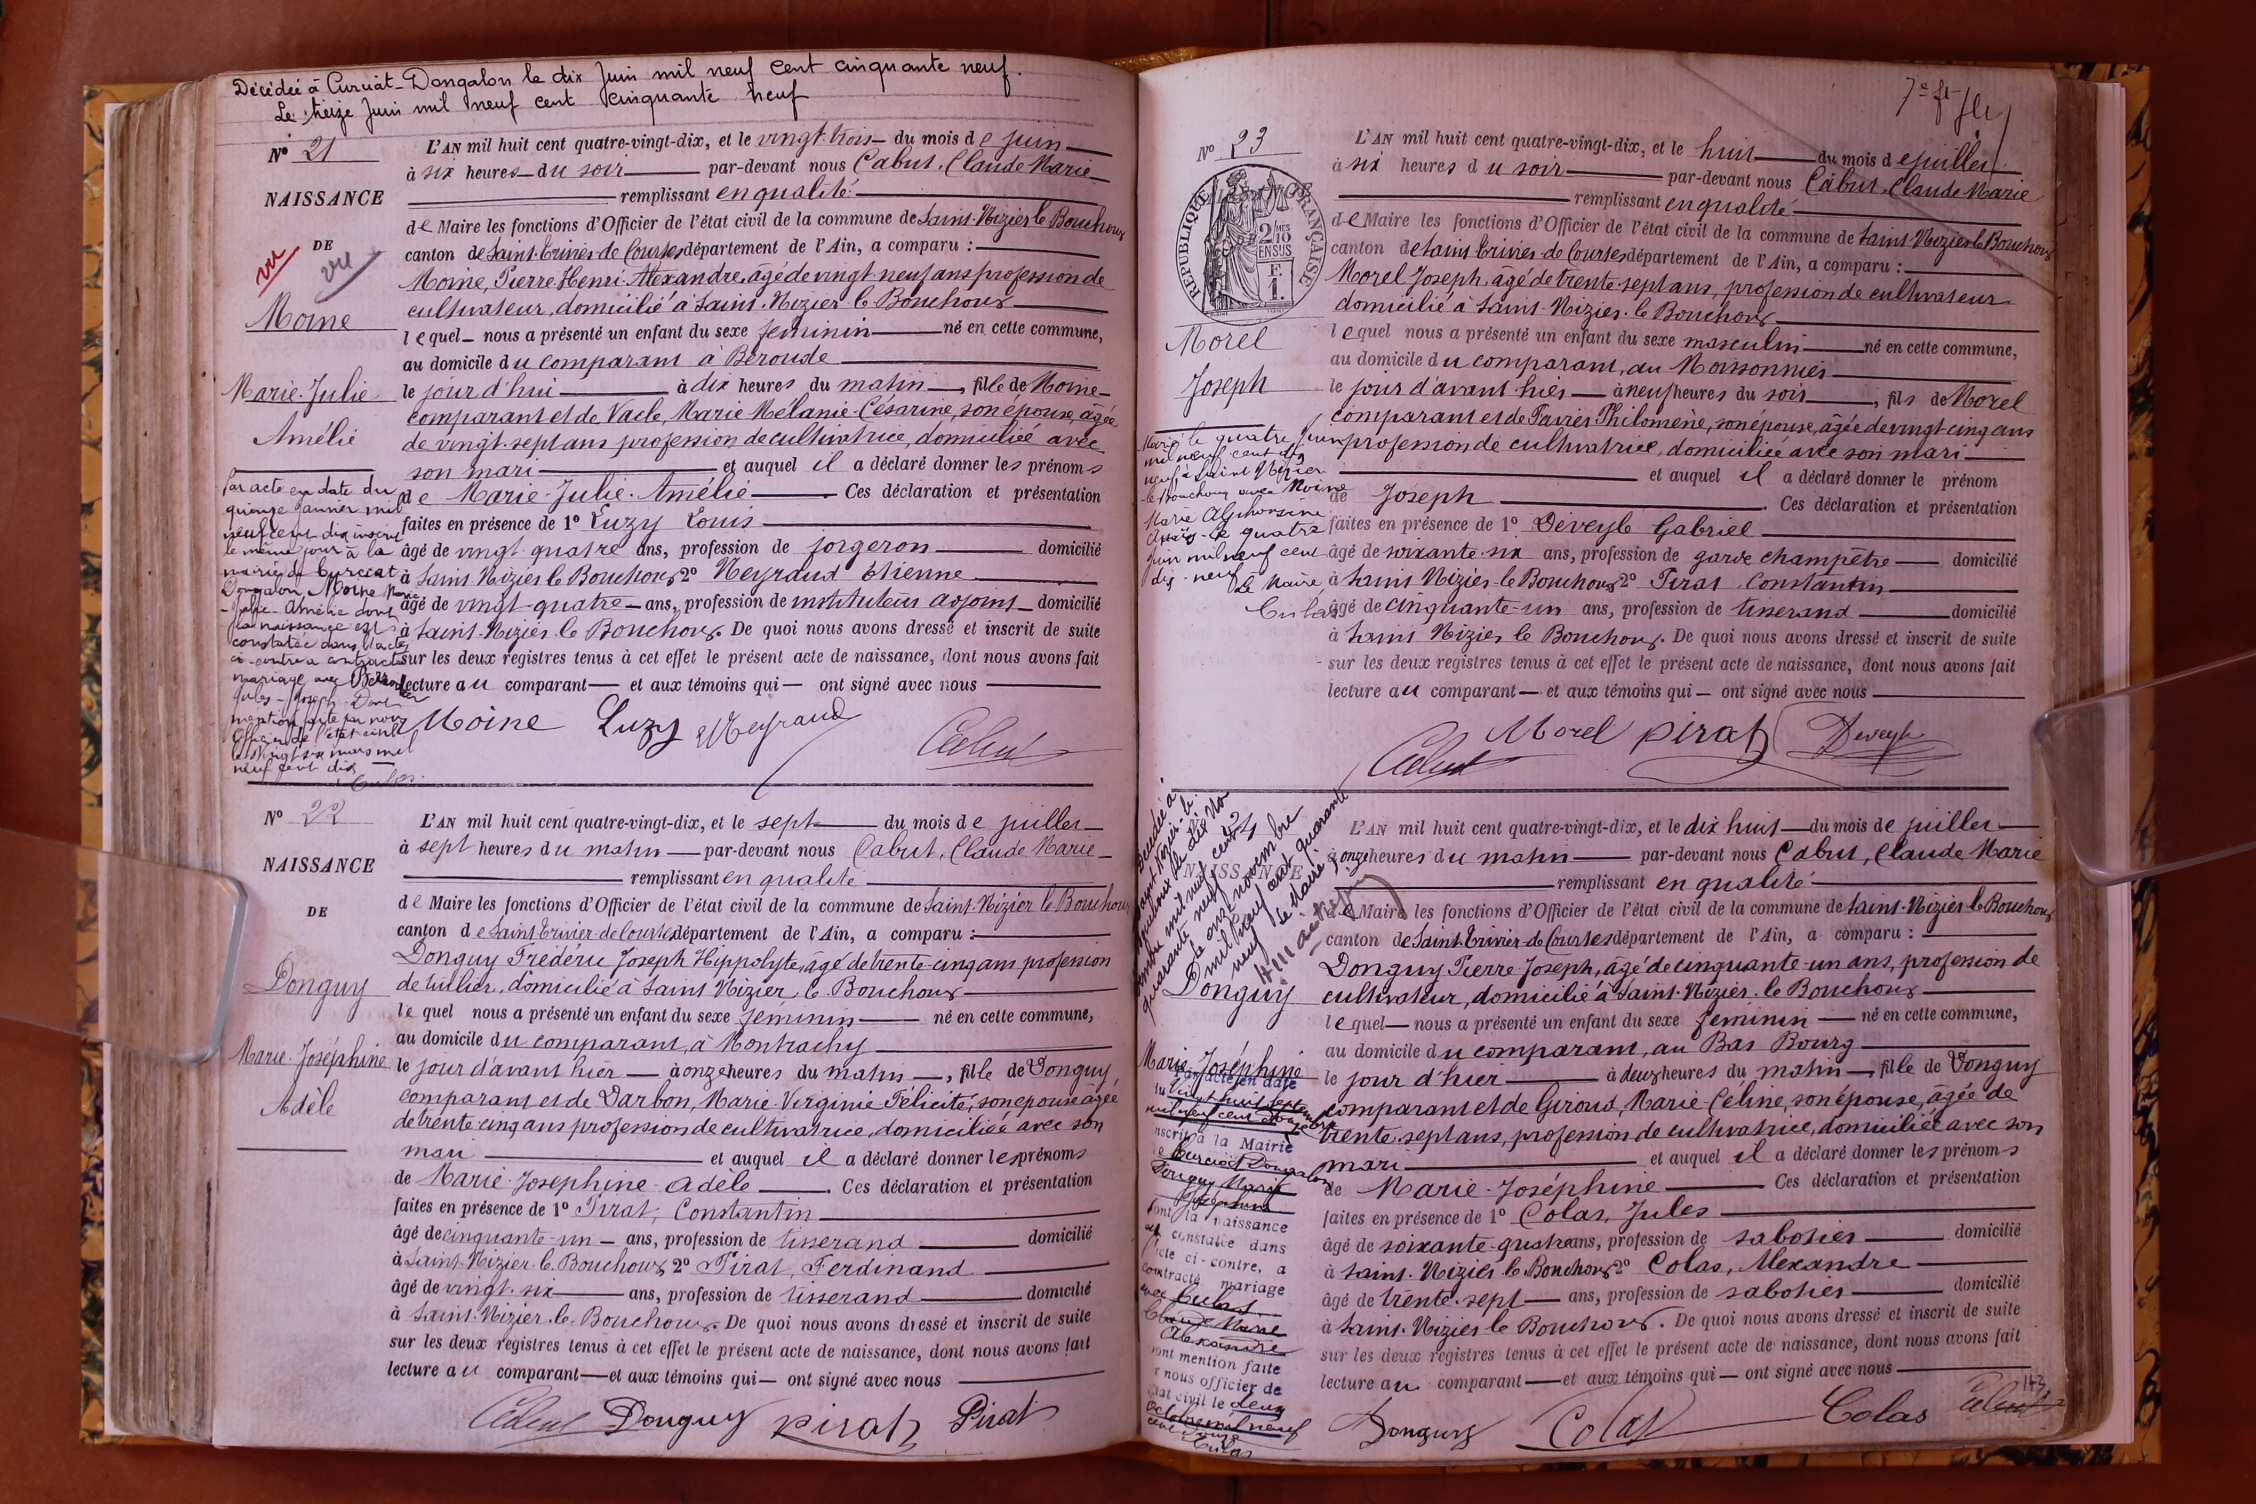 Décédée à Curciat-Dongalon le dix Juin mil neuf cent cinquante neuf.
Le treize Juin mil neuf cent cinquante neuf
N° 21
NAISSANCE
DE
vu
vu
Moine
Marie-Julie
Amélie
Par acte en date du
quinze janvier mil
neuf cent dix inscrit
le même jour à la
mairie de Curciat
Dongalon, Moine Marie
-Julie-Amélie dont
la naissance est
constatée dans l'acte
ci-contre a contracté
mariage avec
Jules-Joseph. Dont
mention faite par nous
officier de l'état civil
le vingt-six mars mil
neuf cent dix
L'AN mil huit cent quatre-vingt-dix, et le vingt-trois du mois de juin
à six heures du soir par-devant nous Cabut, Claude Marie
remplissant en qualité
de Maire les fonctions d'Officier de l'état civil de la commune de Saint-Nizier le Bouchoux
canton de Saint-Trivier-de-Courtes département de l'Ain, a comparu :
Moine, Pierre Henri Alexandre, âgé de vingt-neuf ans profession de
cultivateur, domicilié à Saint-Nizier le Bouchoux
lequel nous a présenté un enfant du sexe féminin né en cette commune,
au domicile du comparant à Béroude
le jour d'hui à dix heures du matin, fille de Moine
comparant et de Vacle, Marie Mélanie Césarine, son épouse, âgée
de vingt-sept ans profession de cultivatrice, domiciliée avec
son mari et auquel il a déclaré donner les prénoms
de Marie-Julie-Amélie Ces déclaration et présentation
faites en présence de 1° Luzy Louis
âgé de vingt quatre ans, profession de forgeron domicilié
à Saint Nizier le Bouchoux 2° Neyraud Etienne
âgé de vingt-quatre ans, profession de instituteur adjoint domicilié
à Saint-Nizier le Bouchoux. De quoi nous avons dressé et inscrit de suite
sur les deux registres tenus à cet effet le présent acte de naissance, dont nous avons fait
lecture au comparant et aux témoins qui ont signé avec nous
Moine Luzy Neyraud
Cabut
N° 22
NAISSANCE
DE
Donguy
Marie-Joséphine
Adèle
L'AN mil huit cent quatre-vingt-dix, et le sept du mois de juillet
à sept heures du matin par-devant nous Cabut, Claude Marie
remplissant en qualité
de Maire les fonctions d'Officier de l'état civil de la commune de Saint-Nizier le Bouchoux
canton de Saint Trivier-de-Courtes département de l'Ain, a comparu :
Donguy Frédéric Joseph Hippolyte, âgé de trente-cinq ans profession
de tuilier, domicilié à Saint Nizier le Bouchoux
lequel nous a présenté un enfant du sexe féminin né en cette commune,
au domicile du comparant, à Montrachy
le jour d'avant hier à onze heures du matin, fille de Donguy,
comparant et de Darbon, Marie-Virginie Félicité, son épouse âgée
de trente-cinq ans profession de cultivatrice, domiciliée avec son
mari et auquel il a déclaré donner les prénoms
de Marie-Joséphine-Adèle. Ces déclaration et présentation
faites en présence de 1° Pirat, Constantin
âgé de cinquante-un ans, profession de tisserand domicilié
à Saint-Nizier le Bouchoux 2° Pirat, Ferdinand
âgé de vingt-six ans, profession de tisserand domicilié
à Saint-Nizier-le-Bouchoux. De quoi nous avons dressé et inscrit de suite
sur les deux registres tenus à cet effet le présent acte de naissance, dont nous avons fait
lecture au comparant et aux témoins qui ont signé avec nous
Cabut Donguy Pirat Pirat
N° 23
RÉPUBLIQUE FRANÇAISE
2/10 MES
EN SUS
Morel
Joseph
Marié le quatre juin
mil neuf cent dix
neuf à Saint Nizier
le Bouchoux avec Moine
Marie Alphonsine
Anaïs. Le quatre
juin mil neuf cent
dix-neuf
Le Maire
L'AN mil huit cent quatre-vingt-dix, et le huit du mois de juillet
à six heures du soir par-devant nous Cabut, Claude Marie
remplissant en qualité
de Maire les fonctions d'Officier de l'état civil de la commune de Saint-Nizier le Bouchoux
canton de Saint Trivier-de-Courtes département de l'Ain, a comparu :
Morel Joseph, âgé de trente-sept ans, profession de cultivateur
domicilié à Saint-Nizier-le Bouchoux
lequel nous a présenté un enfant du sexe masculin né en cette commune,
au domicile du comparant, au Moissonnier
le jour d'avant hier à neuf heures du soir, fils de Morel
comparant et de Pavier Philomène, son épouse, âgée de vingt-cinq ans
profession de cultivatrice, domiciliée avec son mari
et auquel il a déclaré donner le prénom
de Joseph. Ces déclaration et présentation
faites en présence de 1° Deveyle Gabriel
âgé de soixante-six ans, profession de garde champêtre domicilié
à Saint Nizier-le Bouchoux 2° Pirat Constantin
âgé de cinquante-un ans, profession de tisserand domicilié
à Saint Nizier le Bouchoux. De quoi nous avons dressé et inscrit de suite
sur les deux registres tenus à cet effet le présent acte de naissance, dont nous avons fait
lecture au comparant et aux témoins qui ont signé avec nous
Morel Pirat Deveyle
Cabut
Décédée à
Saint Nizier-le
Bouchoux le dix No
vembre mil neuf cent
quarante neuf
Le onze novembre
mil neuf cent quarante
neuf Le Maire
N° 24
NAISSANCE
Donguy
Marie Joséphine
Par acte en date
du vingt huit septembre
mil neuf cent douze
inscrit à la Mairie
de Curciat Dongalon
Donguy Marie
Joséphine
dont la naissance
est constatée dans
l'acte ci-contre, a
contracté mariage
avec
Claude Marie
Alexandre
dont mention faite
par nous officier de
l'état civil le deux
octobre mil neuf
cent douze
L'AN mil huit cent quatre-vingt-dix, et le dix huit du mois de juillet
à onze heures du matin par-devant nous Cabut, Claude Marie
remplissant en qualité
de Maire les fonctions d'Officier de l'état civil de la commune de Saint-Nizier-le-Bouchoux
canton de Saint Trivier-de-Courtes département de l'Ain, a comparu :
Donguy Pierre Joseph, âgé de cinquante-un ans, profession de
cultivateur, domicilié à Saint-Nizier-le Bouchoux
lequel nous a présenté un enfant du sexe féminin né en cette commune,
au domicile du comparant, au Bas Bourg
le jour d'hier à deux heures du matin, fille de Donguy
comparant et de Giroud, Marie-Céline, son épouse, âgée de
trente-sept ans, profession de cultivatrice, domiciliée avec son
mari et auquel il a déclaré donner les prénoms
de Marie-Joséphine Ces déclaration et présentation
faites en présence de 1° Colas, Jules
âgé de soixante-quatre ans, profession de sabotier domicilié
à Saint-Nizier le Bouchoux 2° Colas, Alexandre
âgé de trente-sept ans, profession de sabotier domicilié
à Saint-Nizier le Bouchoux. De quoi nous avons dressé et inscrit de suite
sur les deux registres tenus à cet effet le présent acte de naissance, dont nous avons fait
lecture au comparant et aux témoins qui ont signé avec nous
Donguy Colas Colas Cabut
143